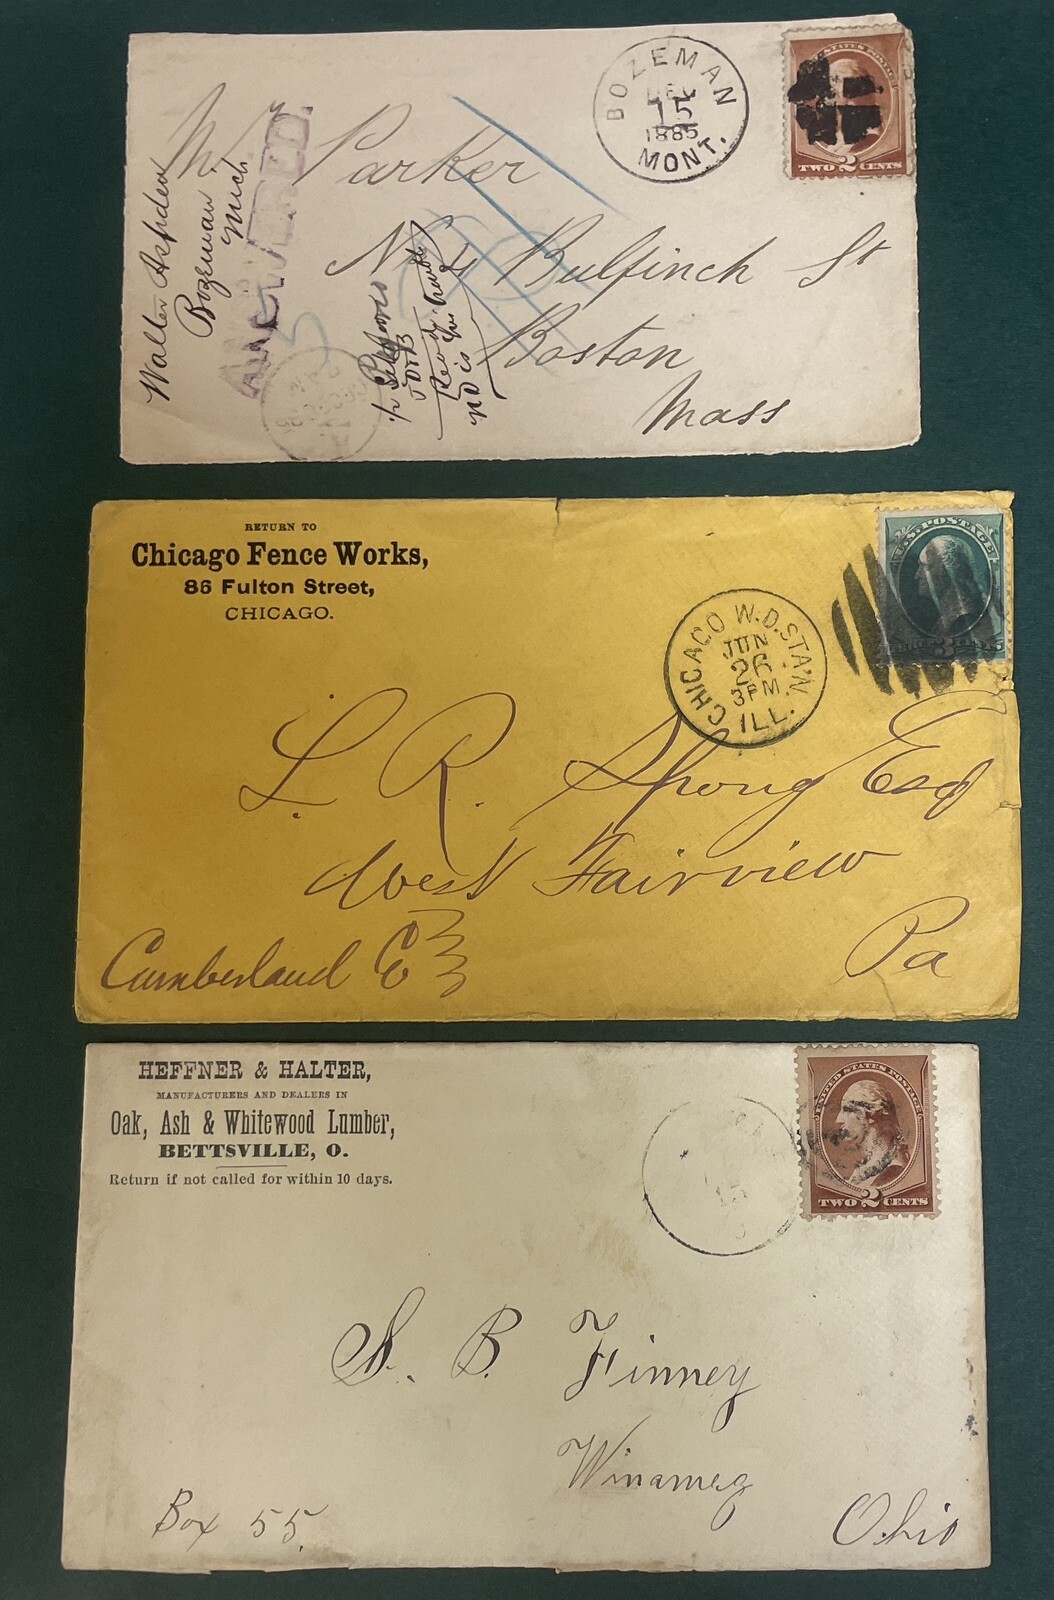 BOZEMAN
DEC
15
1885
MONT.
UNITED STATES POSTAGE
TWO 2 CENTS
Mr Parker
No 4 Bulfinch St
Boston
Mass
Walter Aspden
Bozeman
Mich
RETURN TO
Chicago Fence Works,
86 Fulton Street,
CHICAGO.
CHICAGO W.D. STA'N.
JUN
26
3PM
ILL.
U.S. POSTAGE
3
L. R. Spong Esq
West Fairview
Pa
Cumberland Co
HEFFNER & HALTER,
MANUFACTURERS AND DEALERS IN
Oak, Ash & Whitewood Lumber,
BETTSVILLE, O.
Return if not called for within 10 days.
UNITED STATES POSTAGE
TWO 2 CENTS
15
S. B. Finney
Winameg
Ohio
Box 55.